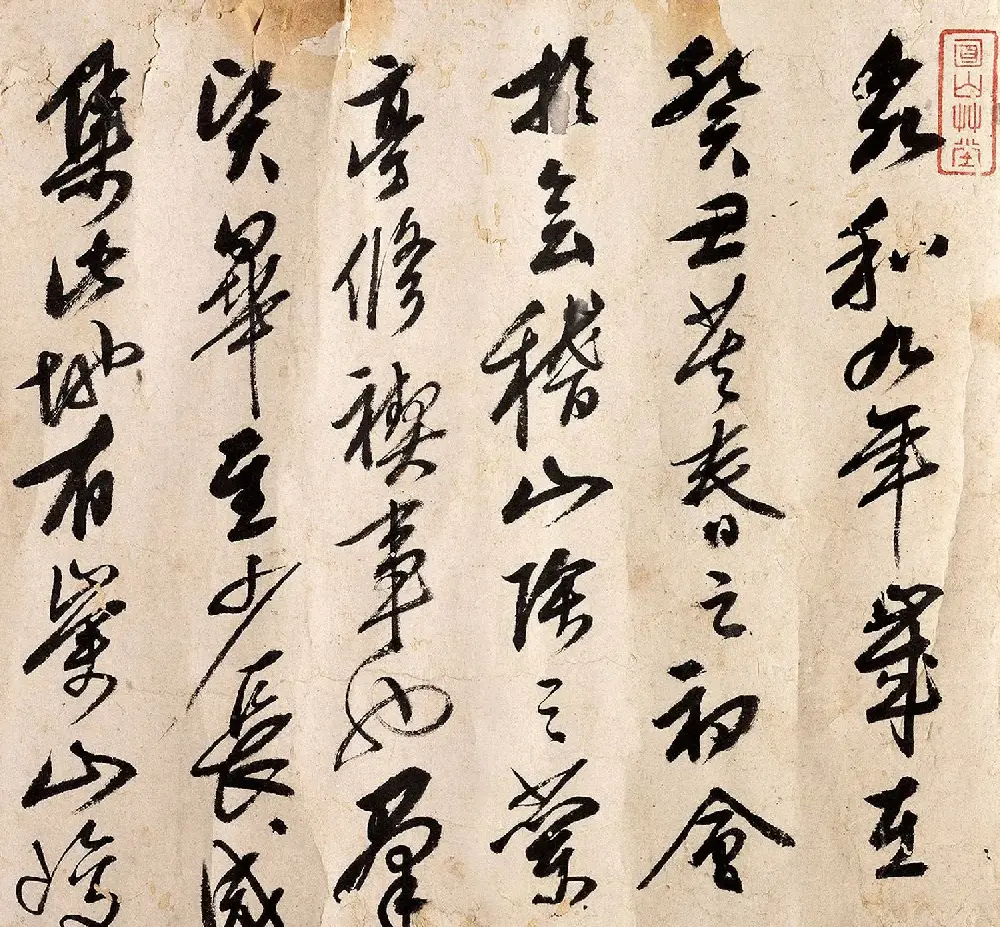 圓山艸堂
永和九年歲在
癸丑莫春之初會
於會稽山陰之蘭
亭修禊事也羣
賢畢至少長咸
集此地有崇山峻